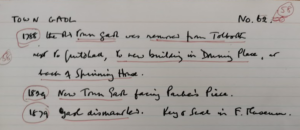 TOWN GAOL No. 62.
1788 the old Town Gaol was removed from Tolbooth
next to Guildhall, to new building in Downing Place, at
back of Spinning House.
1829 New Town Gaol facing Parker's Piece.
1879 gaol dismantled. Keys & Seal in F. Museum.